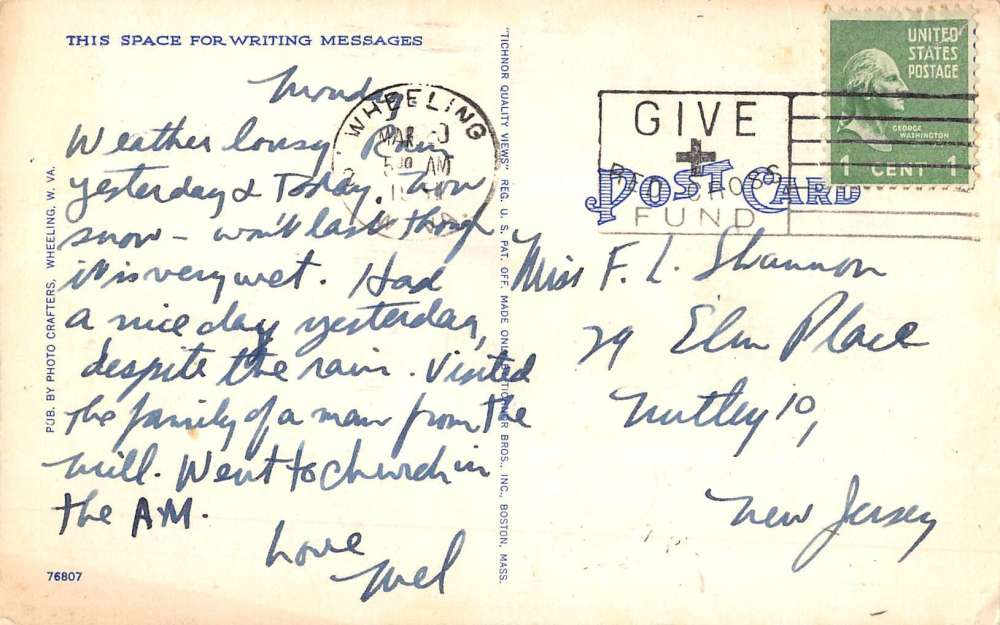 THIS SPACE FOR WRITING MESSAGES
Monday
Weather lousy Rain
yesterday & Today now
snow – won't last though
it is very wet. Had
a nice day yesterday,
despite the rain. Visited
the family of a man from the
mill. Went to church in
the A.M.
Love
Mel
76807
PUB. BY PHOTO CRAFTERS, WHEELING, W. VA.
"TICHNOR QUALITY VIEWS" REG. U. S. PAT. OFF. MADE ONLY BY TICHNOR BROS., INC., BOSTON, MASS.
WHEELING
MAR
AM
GIVE
RED CROSS
FUND
UNITED
STATES
POSTAGE
GEORGE
WASHINGTON
1 CENT 1
POST CARD
Miss F. L. Shannon
29 Elm Place
Nutley 10,
New Jersey